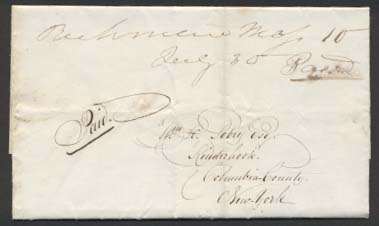 Richmond Mass 10
July 30 Paid
Paid.
Wm H. Tobey Esq.
Kinderhook.
Columbia County.
New York